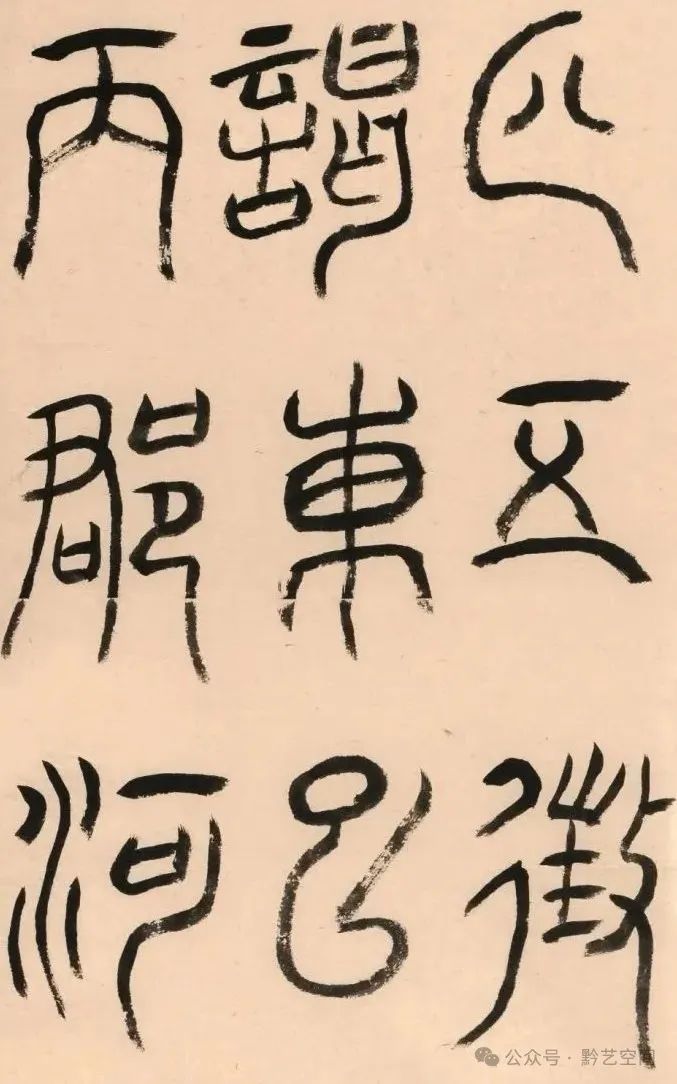 匹五徵
謁東
丙郡河
公众号 · 黔艺空间